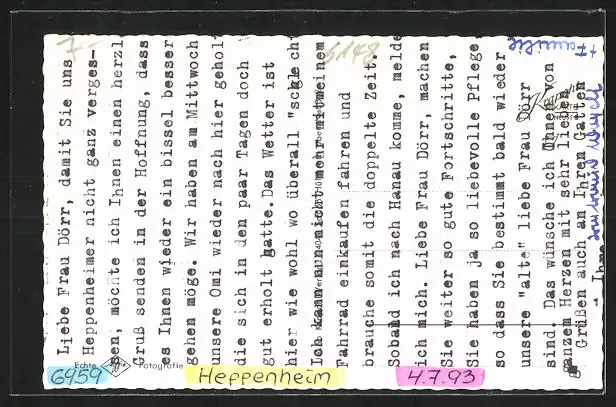 Liebe Frau Dörr, damit Sie uns
Heppenheimer nicht ganz verges-
sen, möchte ich Ihnen einen herzl
Gruß senden in der Hoffnung, dass
es Ihnen wieder ein bissel besser
gehen möge. Wir haben am Mittwoch
unsere Omi wieder nach hier geholt
die sich in den paar Tagen doch
gut erholt hatte. Das Wetter ist
hier wie wohl wo überall "schlecht
Ich kann nun nicht mehr mit meinem
Fahrrad einkaufen fahren und
brauche somit die doppelte Zeit.
Sobald ich nach Hanau komme, melde
ich mich. Liebe Frau Dörr, machen
Sie weiter so gute Fortschritte,
Sie haben ja so liebevolle Pflege
so dass Sie bestimmt bald wieder
unsere "alte" liebe Frau Dörr
sind. Das wünsche ich Ihnen von
ganzem Herzen mit sehr lieben
Grüßen auch an Ihren Gatten
+ Familie
Echte
Fotografie
6959
Heppenheim
4.7.93
7-
6148